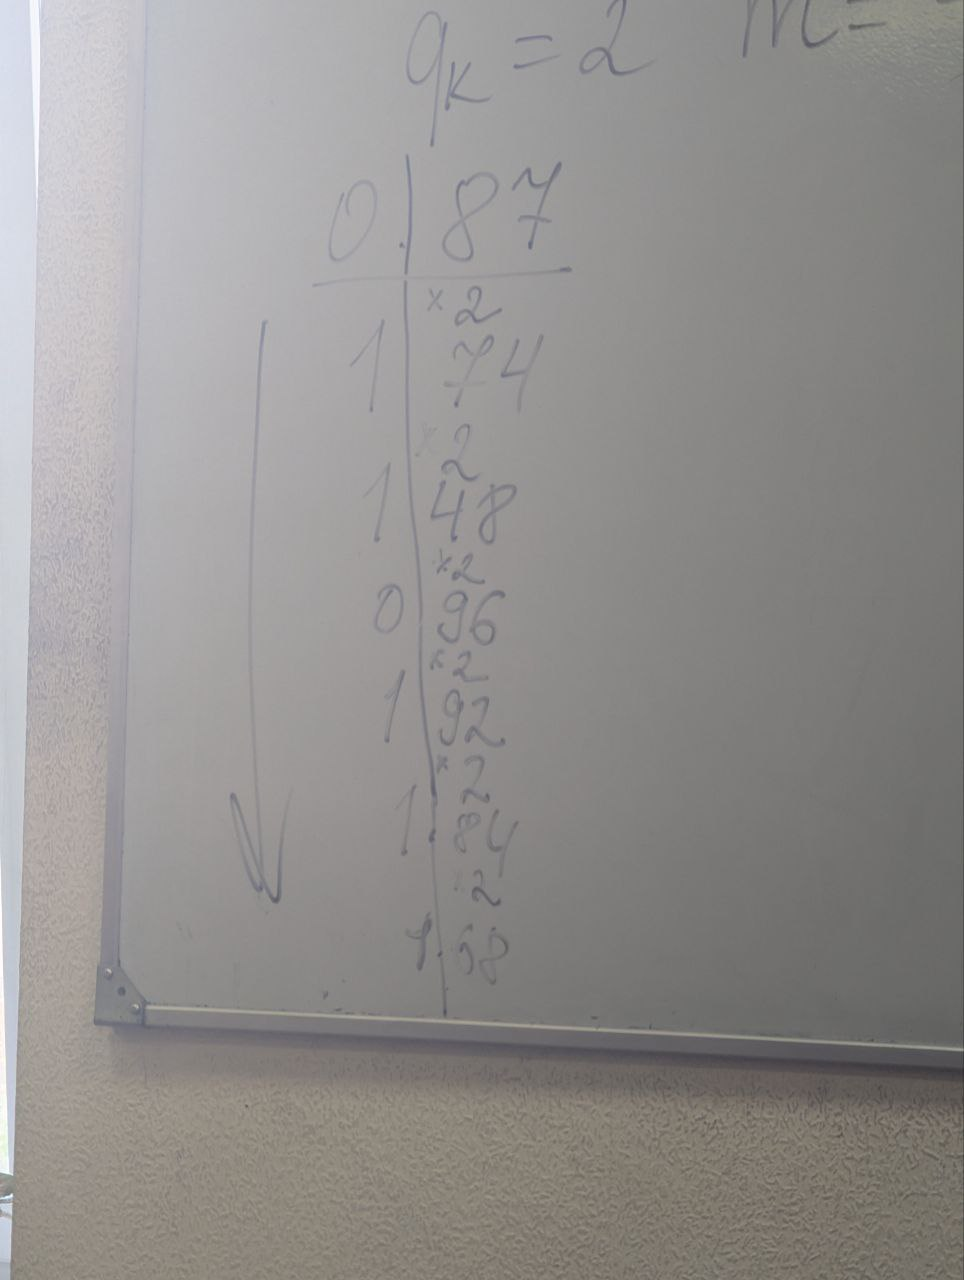 qk = 2 m =
0. 87
×2
1 74
×2
1 48
×2
0 96
×2
1 92
×2
1. 84
2
1. 68